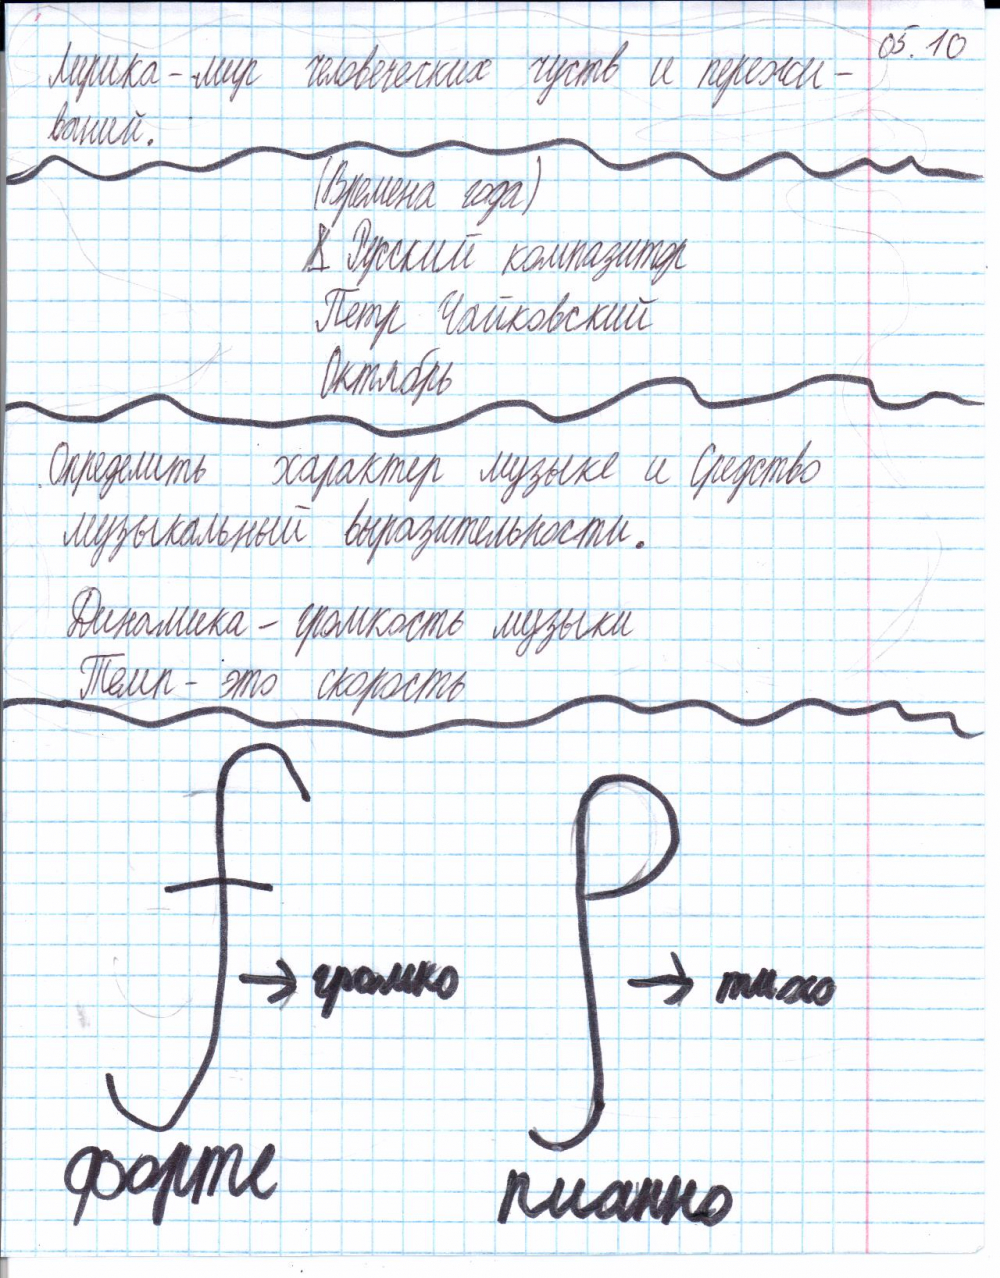 05.10
Лирика - мир человеческих чуств и пережи-
ваний.
(Времена года)
Русский компазитор
Петр Чайковский
Октябрь
Определить характер музыке и Средство
музыкальный выразительности.
Динамика - громкость музыки
Темп - это скорость
f p
→ громко → тихо
форте пианно